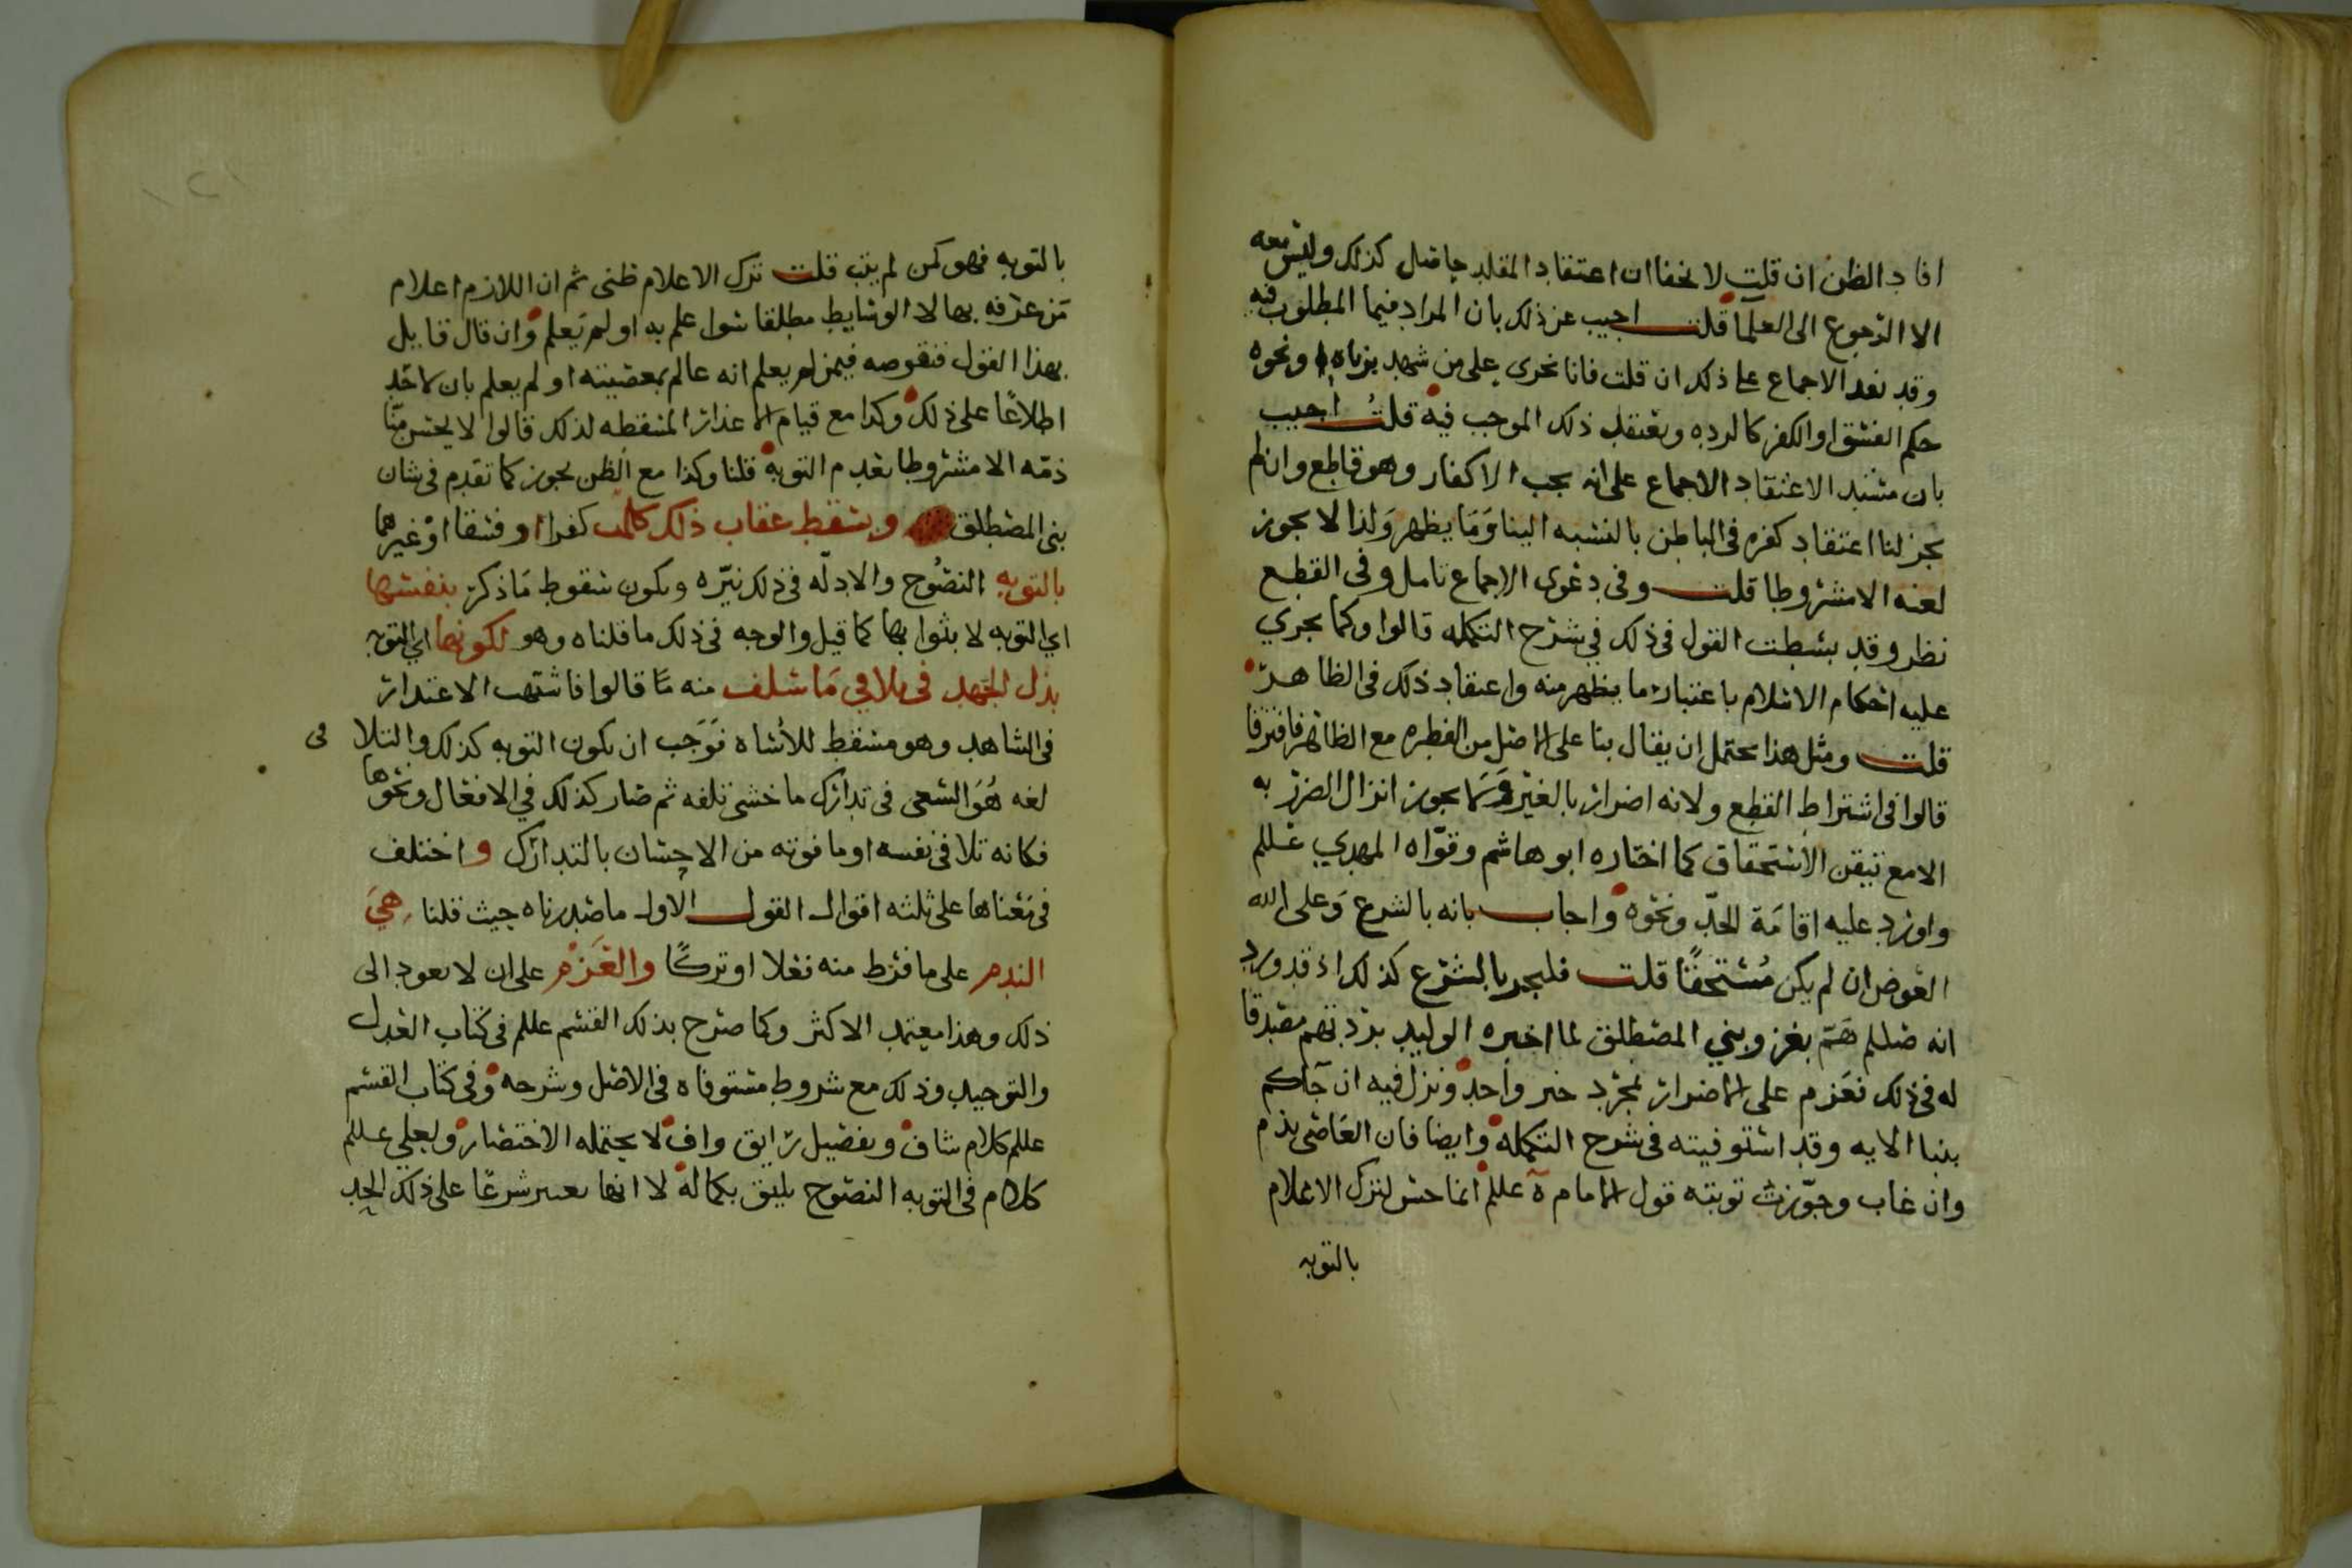 افاد الظن ان قلت لا يخفا ان اعتقاد المقلد حاصل كذلك وليس معه
الا الرجوع الى العلما قلت اجيب عن ذلك بان المراد فيما المطلوب فيه
وقد نعد الاجماع على ذلك ان قلت فانا نجرى على من شهد بزناه ونحوه
حكم الفسق او الكفر كالرده ويعتقد ذلك الموجب فيه قلت اجيب
بان مستند الاعتقاد الاجماع على انه يجب الاكفار وهو قاطع وان لم
يجز لنا اعتقاد كفره فى الباطن بالنسبه الينا وما يظهر ولذا لا يجوز
لعنه الا مشروطا قلت وفى دعوى الاجماع تامل وفى القطع
نظر وقد بسطت القول فى ذلك في شرح التكمله قالوا وكما يجري
عليه احكام الاسلام باعتبار ما يظهر منه واعتقاد ذلك فى الظاهر
قلت ومثل هذا يحتمل ان يقال بنا على الاصل من الفطره مع الظاهر فافترقا
قالوا فى اشتراط القطع ولانه اضرار بالغير وما يجوز انزال الضرر به
الا مع تيقن الاستحقاق كما اختاره ابو هاشم وقواه المهدي عللم
واورد عليه اقامة الحد ونحوه واجاب بانه بالشرع وعلى الله
العوض ان لم يكن مستحقا قلت فليجر بالشرع كذلك اذ قد ورد
انه صللم هم بغزو بني المصطلق لما اخبره الوليد بردتهم مصدقا
له فى ذلك فعزم على الاضرار بمجرد خبر واحد ونزل فيه ان جآكم
بنبا الايه وقد استوفيته فى شرح التكمله وايضا فان العاصى يذم
وان غاب وجوزت توبته قول الامام ة عللم انما حسن لترك الاعلام
بالتوبه
بالتوبه فهو كمن لم يتب قلت ترك الاعلام ظنى ثم ان اللازم اعلام
من عرفه بها لا الوسايط مطلقا سوا علم به او لم يعلم وان قال قايل
بهذا القول فنقوصه فيمن لم يعلم انه عالم بمعصيته او لم يعلم بان لاحد
اطلاعا على ذلك وكذا مع قيام الاعذار المسقطه لذلك قالوا لا يحسن منا
ذمه الا مشروطا بعدم التوبه قلنا وكذا مع الظن يجوز كما تقدم فى شان
بنى المصطلق ويسقط عقاب ذلك كله كفرا او فسقا او غيرهما
بالتوبه النصوح والادله فى ذلك نيره ويكون سقوط ما ذكر بنفسها
اي التوبه لا بثوابها كما قيل والوجه فى ذلك ما قلناه وهو لكونها اي التوبه
بذل الجهد فى تلافي ما سلف منه ما قالوا فاشبهت الاعتذار
فى الشاهد وهو مسقط للأساه فوجب ان يكون التوبه كذلك والتلا فى
لغه هو السعى فى تدارك ما خشى تلفه ثم صار كذلك في الافعال ونحوها
فكانه تلافى نفسه او ما فوته من الاحسان بالتدارك واختلف
فى معناها على ثلثه اقوال القول الاول ما صدرناه حيث قلنا هي
الندم على ما فرط منه فعلا او تركا والعزم على ان لا يعود الى
ذلك وهذا معتمد الاكثر وكما صرح بذلك القسم عللم فى كتاب العدل
والتوحيد وذلك مع شروط مستوفاه فى الاصل وشرحه وفى كتاب القسم
عللم كلام شاف وتفصيل رايق واف لا يحتمله الاختصار ولعلي عللم
كلام فى التوبه النصوح يليق بكماله لا انها شرعا على ذلك الحد